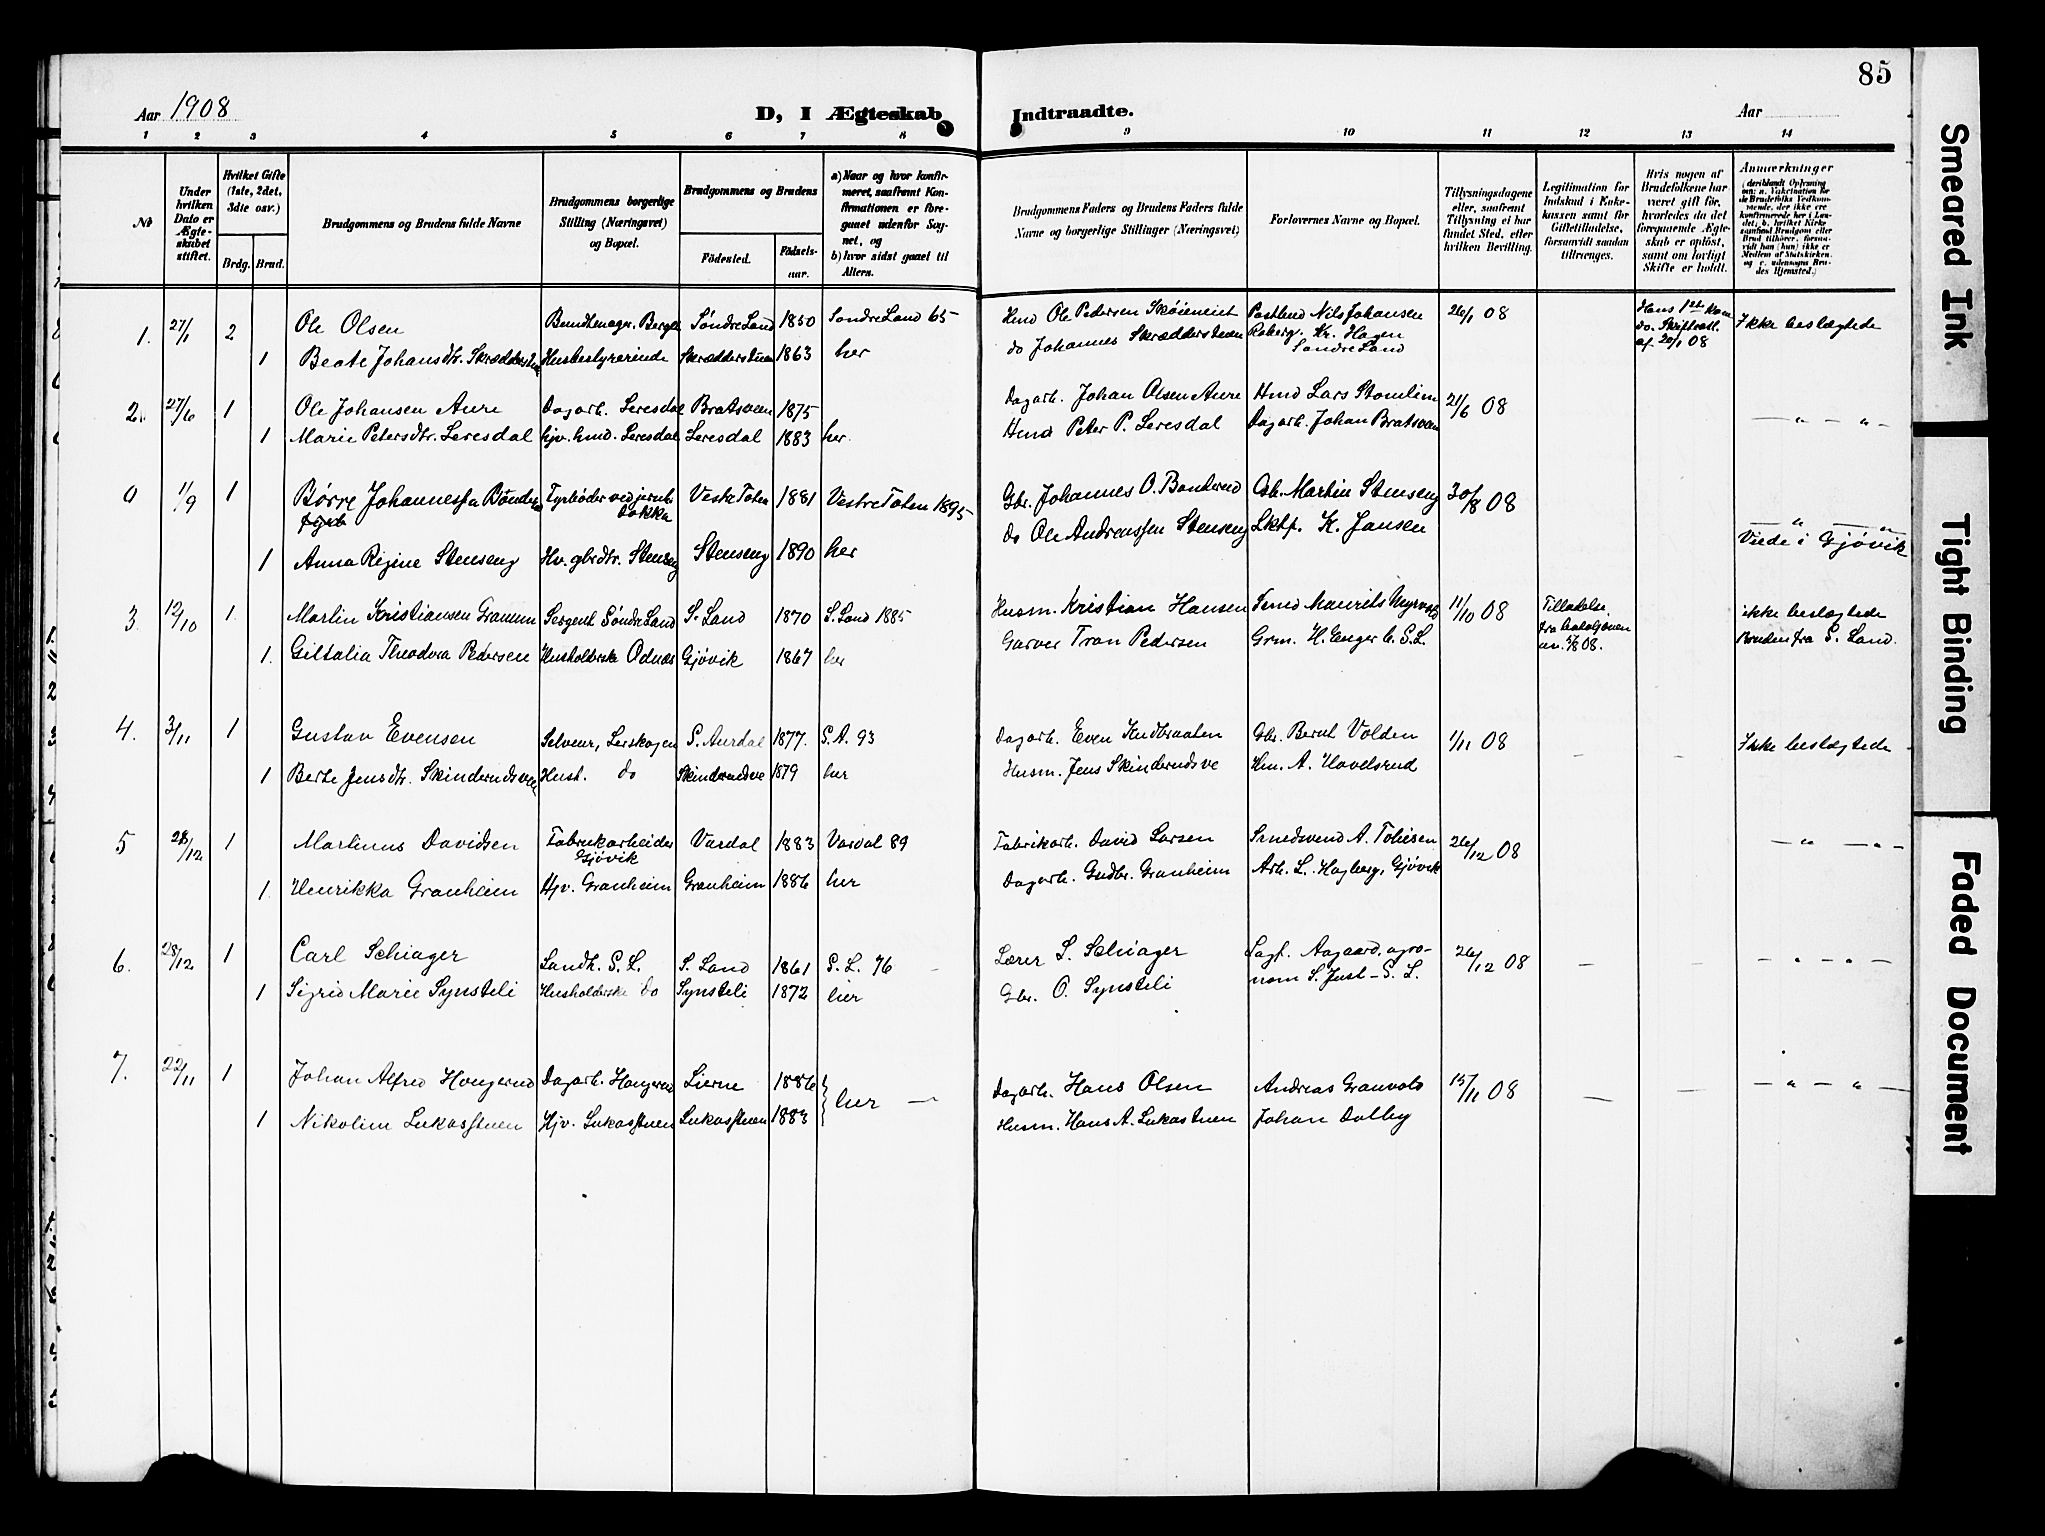 85
Aar 1908
D, I Ægteskab
Indtraadte.
Aar
1 2 3 4 5 6 7 8 9 10 11 12 13 14
No
Under hvilken Dato er Ægteskabet stiftet.
Hvilket Gifte (1ste, 2det, 3die osv.)
Brdg. Brud.
Brudgommens og Brudens fulde Navne
Brudgommens borgerlige Stilling (Næringsvei) og Bopæl.
Brudgommens og Brudens
Födested.
Födselsaar.
a) Naar og hvor konfirmeret, saafremt Konfirmationen er foregaaet udenfor Sognet, og
b) hvor sidst gaaet til Alters.
Brudgommens Faders og Brudens Faders fulde Navne og borgerlige Stillinger (Næringsvei)
Forlovernes Navne og Bopæl.
Tillysningsdagene eller, saafremt Tillysning ei har fundet Sted, efter hvilken Bevilling.
Legitimation for Indskud i Enkekassen samt for Giftetilladelse, forsaavidt saadan tiltrænges.
Hvis nogen af Brudefolkene har været gift för, hvorledes da det foregaaende Ægteskab er oplöst, samt om lovligt Skifte er holdt.
Anmærkninger
(deriblandt Oplysning om: a. Vakcination for de Brudefolks Vedkommende, der ikke ere konfirmerede her i Landet, b. hvilket Kirkesamfund Brudgom eller Brud tilhörer, forsaavidt han (hun) ikke er Medlem af Statskirken, og c. udensogns Brudes Hjemsted.)
1. 27/1 2 Ole Olsen Söndre Land 1850 Söndre Land 65 Hmd Ole Pedersen Nils Johansen 26/1 08 Hans 1ste Kone Ikke beslægtede
1 Beate Johansdtr. Husbestyrerinde Skrædderstuen 1863 her do Johannes Skrædderstuen Kr. Hagen
Söndre Land af 20/1 08
2. 27/6 1 Ole Johansen Aure Dagarb. Leresdal Bratsveen 1875 Dagarb. Johan Olsen Aure Hmd Lars 21/6 08 — " — " —
1 Marie Petersdtr. Leresdal hjv. hmd. Leresdal Leresdal 1883 her. Hmd Peter P. Leresdal Dagarb. Johan Bratsveen
0 1/9 1 Børre Fyrbøder ved jernb. Vestre Toten 1881 Vestre Toten 1895 Gbr. Johannes O. Gbr. Martin Stenseng 30/8 08 — " — " —
Dokka
do Ole Andreassen Stenseng Lktp. K. Jansen
Viede i Gjøvik
1 Anna Regine Stenseng Hv. gbrdtr. Stenseng Stenseng 1890 her
3. 12/10 1. Martin Kristiansen Sergent Søndre Land S. Land 1870 S. Land 1885 Husm. Kristian Hansen 11/10 08 Tilladelse ikke beslægtede
1. Theodora Pedersen Husholderske Odnæs Gjøvik 1867 her Garver Tron Pedersen Grm. H. Enger b. S.L. Bruden fra S. Land.
4. 3/11 1 Gustav Evensen S. Aurdal 1877. S. A. 93 Dagarb. Even Gbr. Bernt Volden 1/11 08 – – Ikke beslægtede
1 Berte Jensdtr. Skinderudsveen Hust. do Skinderudsve 1879 her Husm. Jens Skinderudsve Hm. A. Hovelsrud
5 28/12 1 Martinus Davidsen Fabrikarbeider Gjøvik Vardal 1883 Vardal 89 Fabrikarb. David Larsen Smedsvend A. 26/12 08 — " — " —
1. Henrikka Granheim Hjv. Granheim Granheim 1886 her Dagarb. Gudbr. Granheim Arb. L. Hagberg, Gjøvik
6. 28/12 1 Carl Schiager Landh. S. L. S. Land 1861 S. L. 76 – Lærer S. Schiager Sagf. Aagaard, agro- 26/12 08 – – – " – " –
1 Sigrid Marie Synsteli Husholderske do Synsteli 1872 her Gbr. O. Synsteli nom S. Just – S. L.
7. 22/11 1 Johan Alfred Hongerud Dagarb. Hongerud Lierne 1886 her — Dagarb. Hans Olsen Andreas Granvold 15/11 08 — — – " – " —
1 Nikoline Lukasstuen Hjv. Lukasstuen Lukasstuen 1883 Husm. Hans A. Lukastuen Johan Dalby
Smeared Ink
Tight Binding
Faded Document